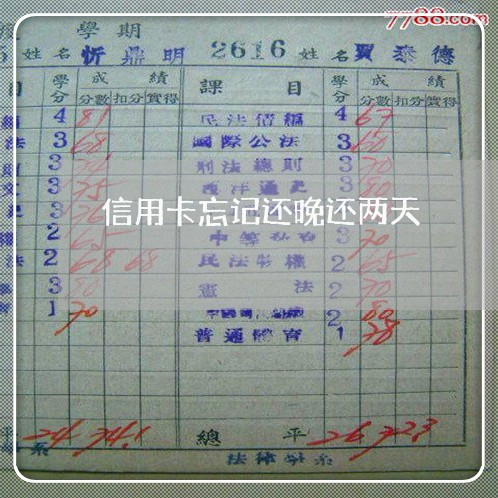 7788.com
學期
姓名 忻鼎明 2616 姓名 賈泰德
目 學分 成績 課目 學分 成績
分數 扣分 實得 分數 扣分 實得
4 81 民法債編 4 67
法 3 68 國際公法 3 60
3 刑法總則 3 70
3 75 西洋通史 3 80
3
信用卡忘记还晚还两天
2 65 3 70
法 2 68 68 民法物權 2 65
3 80 憲法 2 70
1 70 2 80
普通體育 1 78
平 24 74.1 總平 26 72.3
系 法律學系